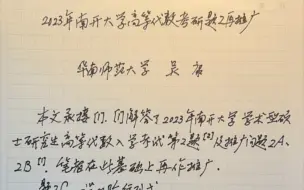 2023年南开大学高等代数考研题2再推广
华南师范大学 吴
本文承接[1]. [1]解答了2023年南开大学学术型硕
士研究生高等代数入学考试第2题[2]及推广问题2A、
2B[1]. 笔者在此基础上再作推广.